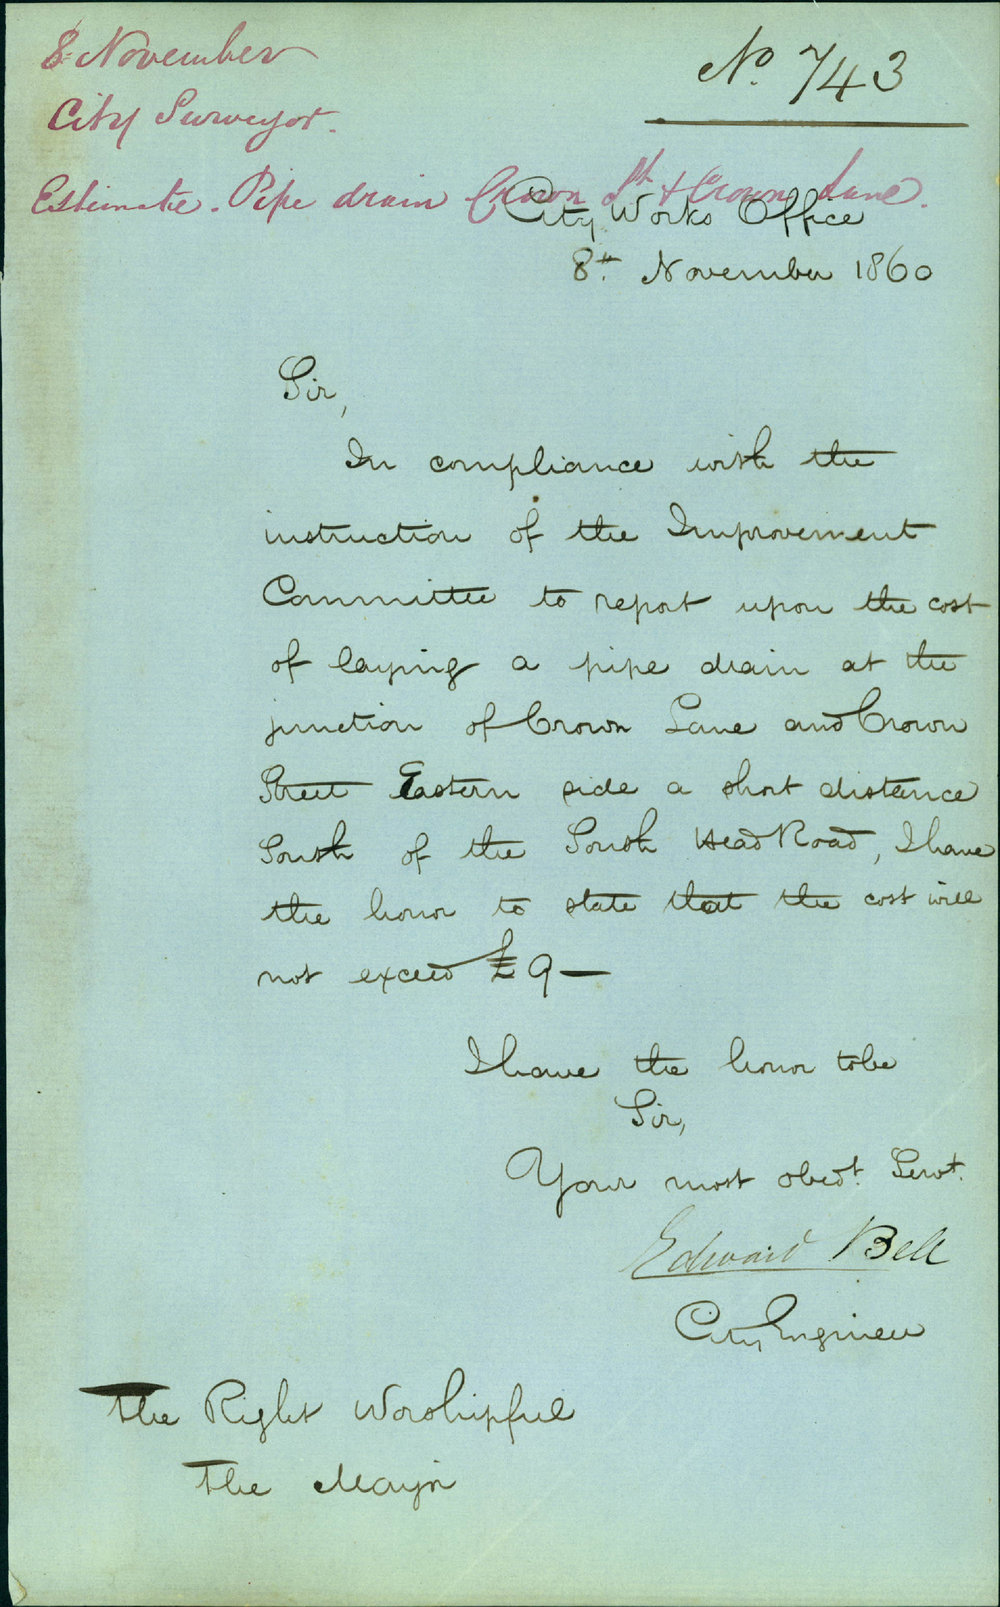 8 November
No. 743
City Surveyor.
Estimate. Pipe drain Crown St. & Crown Lane.
City Works Office
8th. November 1860
Sir,
In compliance with the
instruction of the Improvement
Committee to report upon the cost
of laying a pipe drain at the
junction of Crown Lane and Crown
Street Eastern side a short distance
South of the South Head Road, I have
the honor to state that the cost will
not exceed £9—
I have the honor to be
Sir,
Your most obedt. Servt.
Edward Bell
City Engineer
The Right Worshipful
The Mayor